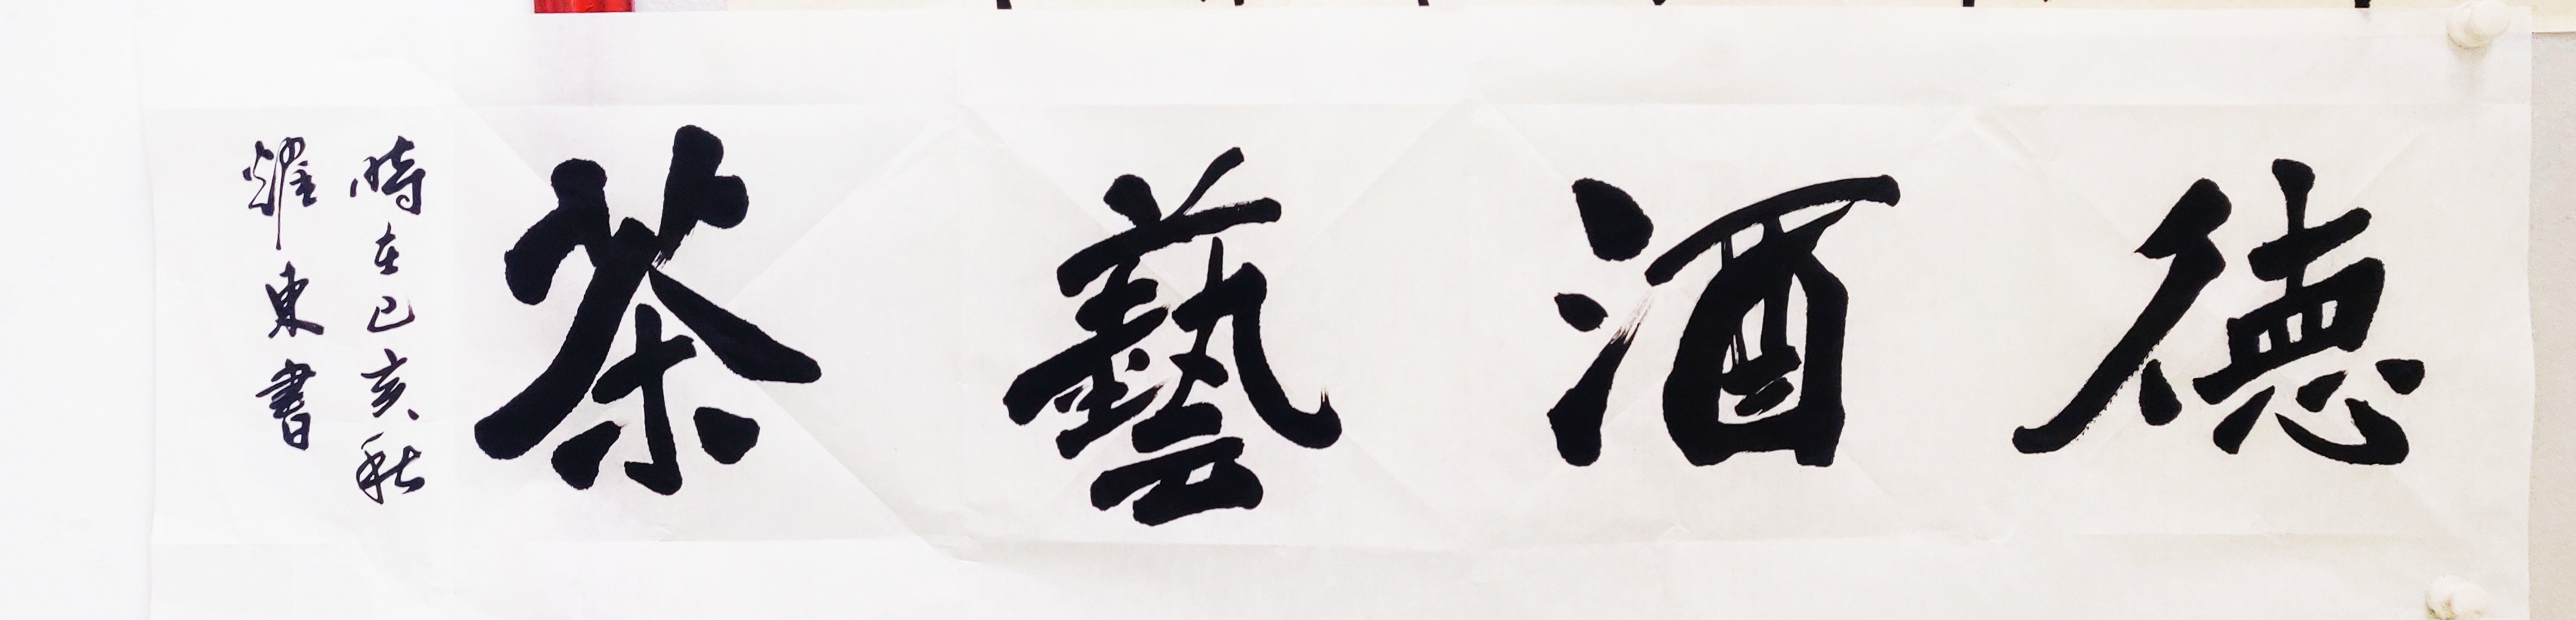 德酒藝茶
時在己亥秋
耀東書